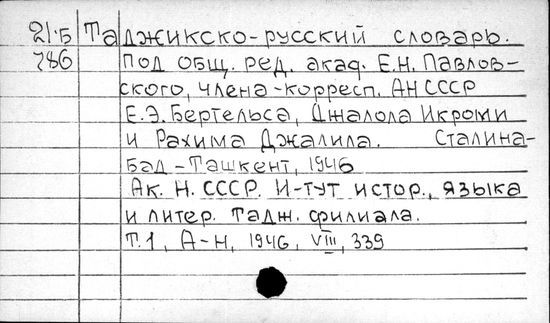 21·Б Таджикско-русский словарь.
786 Под общ. ред. акад. Е.Н. Павлов-
ского, члена-корресп. АН СССР
Е.Э. Бертельса, Джалола Икроми
и Рахима Джалила. Сталина-
бад-Ташкент, 1946
Ак. Н. СССР. И-тут истор., языка
и литер. Тадж. филиала.
Т.1, А-Н, 1946, VIII, 339